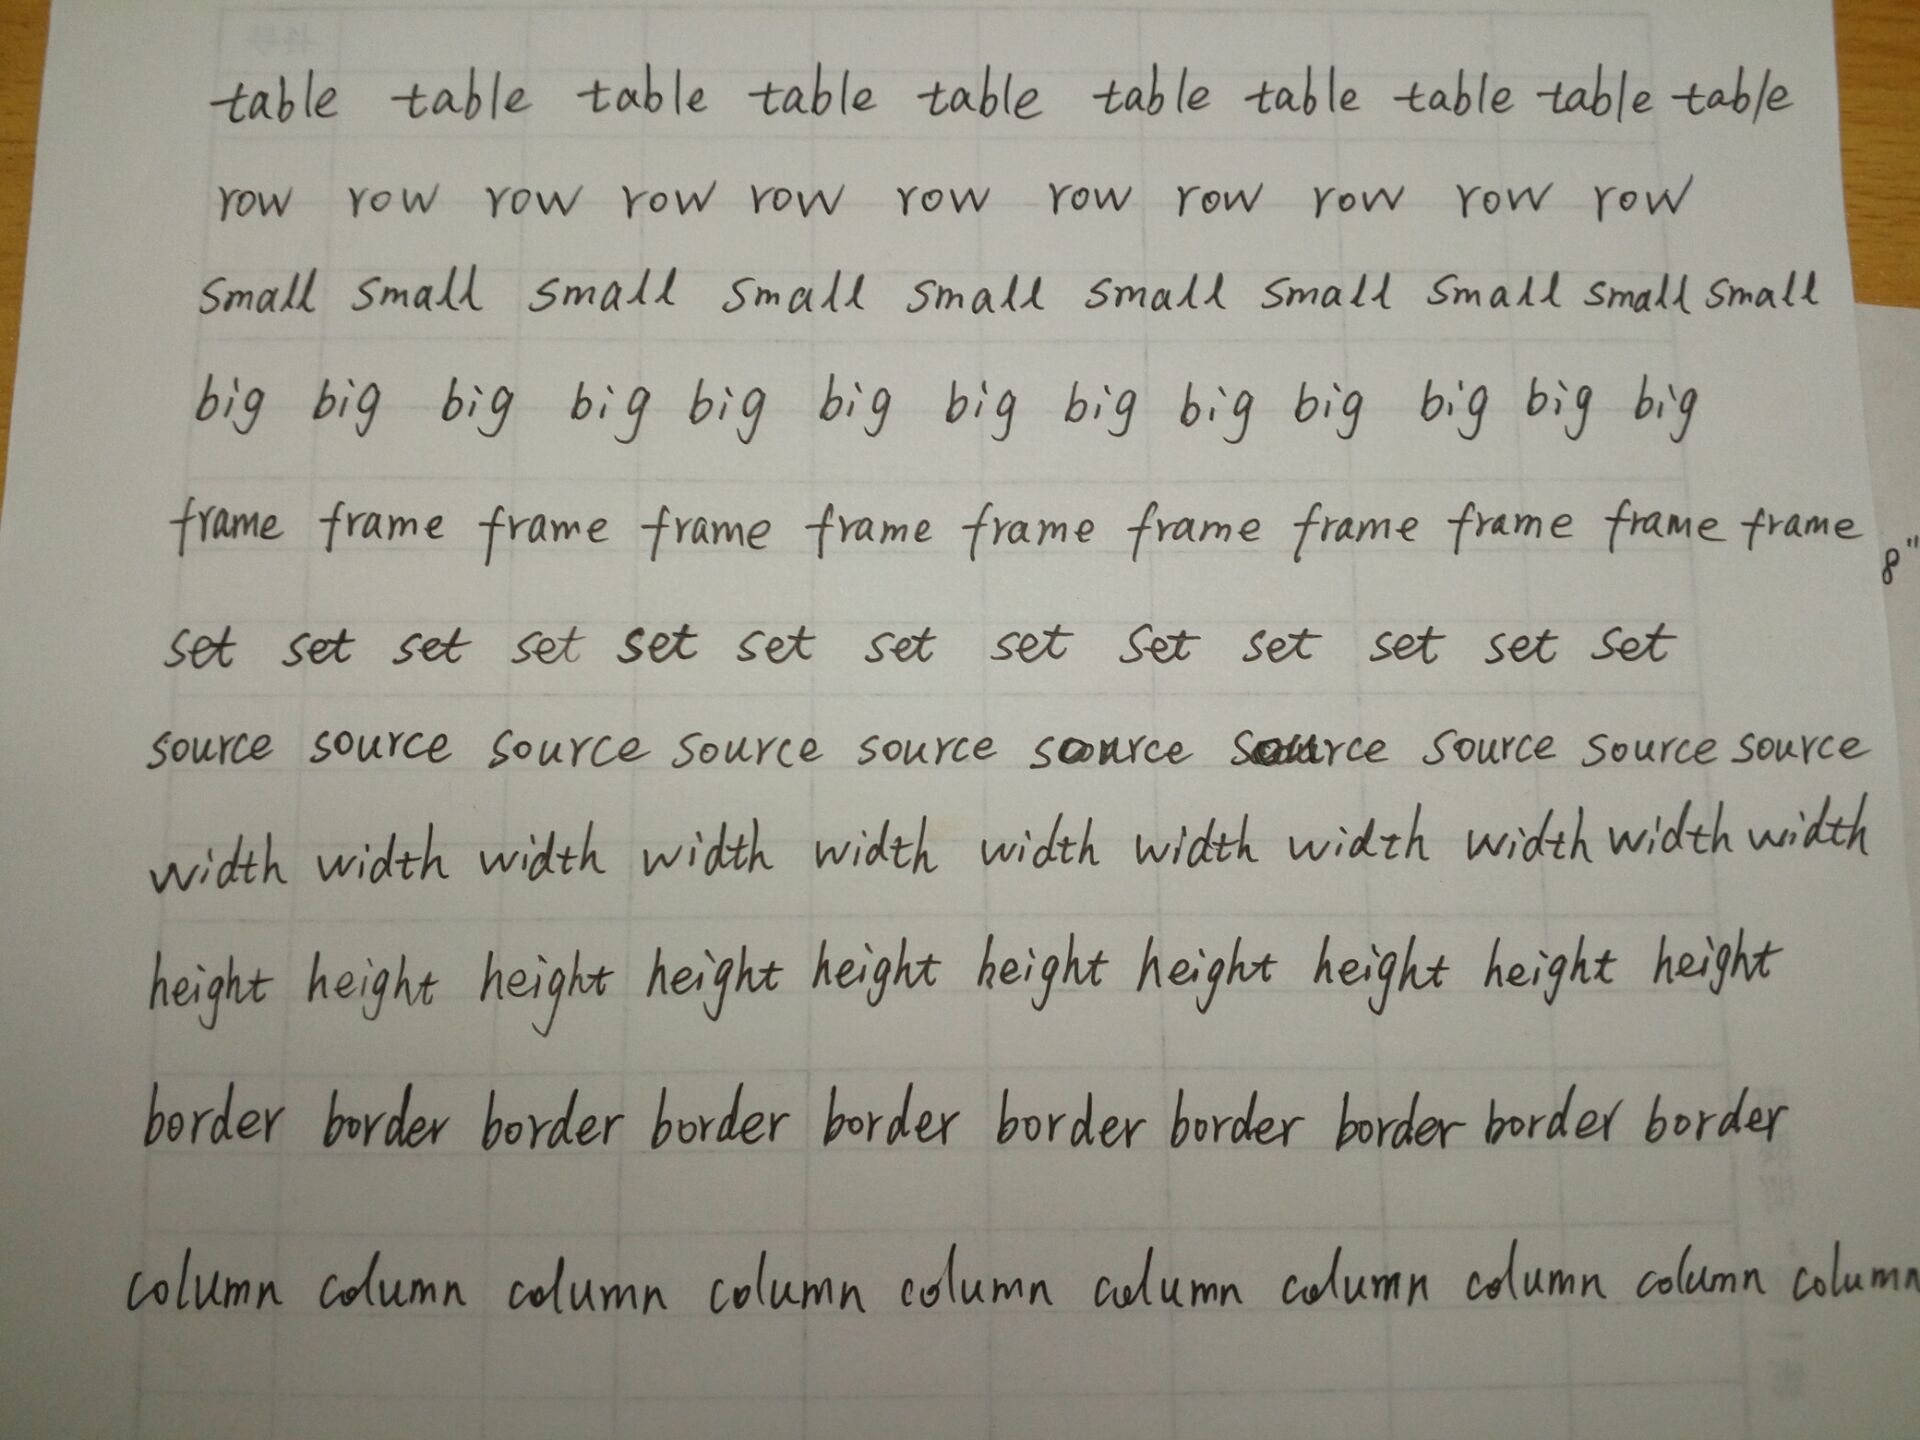 table table table table table table table table table table
row row row row row row row row row row row
small small small small small small small small small small
big big big big big big big big big big big big big
frame frame frame frame frame frame frame frame frame frame frame
8"
set set set set set set set set set set set set set
source source source source source source source source source source
width width width width width width width width width width width
height height height height height height height height height height
border border border border border border border border border border
column column column column column column column column column column